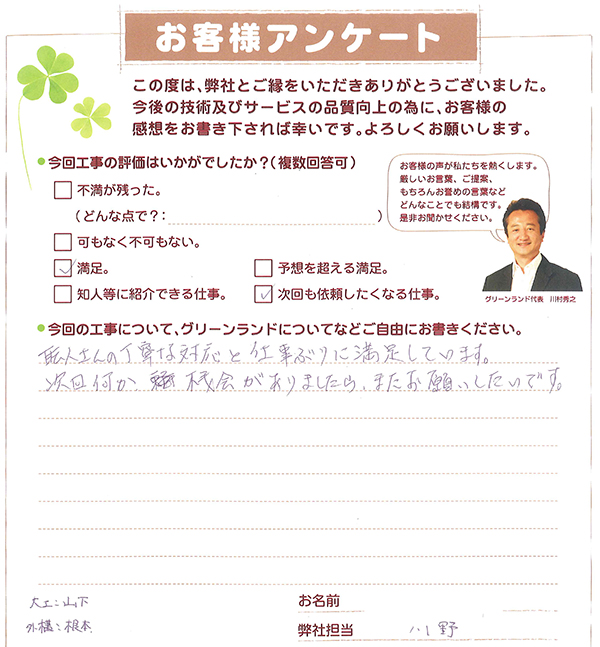 お客様アンケート
この度は、弊社とご縁をいただきありがとうございました。
今後の技術及びサービスの品質向上の為に、お客様の
感想をお書き下されば幸いです。よろしくお願いします。
今回工事の評価はいかがでしたか?(複数回答可)
不満が残った。
(どんな点で?: )
可もなく不可もない。
満足。
予想を超える満足。
知人等に紹介できる仕事。
次回も依頼したくなる仕事。
お客様の声が私たちを熱くします。
厳しいお言葉、ご提案、
もちろんお誉めの言葉など
どんなことでも結構です。
是非お聞かせください。
グリーンランド代表 川村秀之
今回の工事について、グリーンランドについてなどご自由にお書きください。
職人さんの丁寧な対応と仕事ぶりに満足しています。
次回何か、機会がありましたら、またお願いしたいです。
大工:山下
外構:根本
お名前
弊社担当 川野